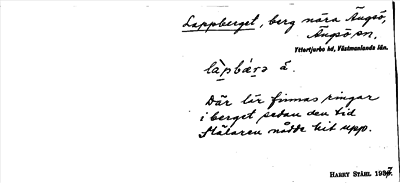 Lappberget, berg nära Ängsö,
Ängsö sn.
Yttertjurbo hd, Västmanlands län.
là̀pbárə á.
Där lär finnas ringar
i berget sedan den tid
Mälaren nådde hit upp.
HARRY STÅHL 1937.